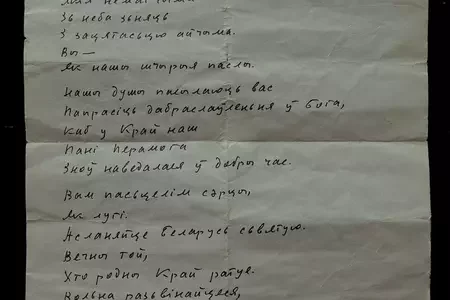 Зь неба зьняць
З зацятасьцю айчыма.
Вы—
Як нашы шчырыя паслы.
Нашы душы пасылаюць вас
Папрасіць дабраслаўленьня ў Бога,
Каб у Край наш
Пані Перамога
Зноў наведалася ў добры час.
Вам пасьцелім сэрцы,
Як лугі.
Асланяйце Беларусь сьвятую.
Вечны той,
Хто родны Край ратуе.
Вольна разьвінайцеся,